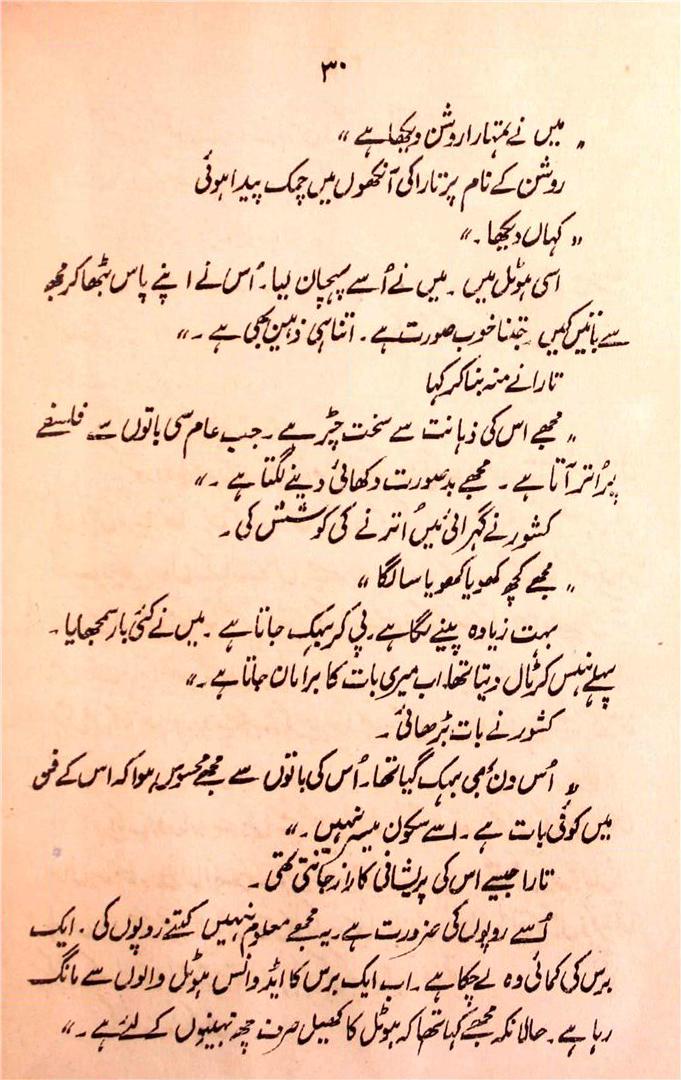 ۳۰
" میں نے تمہارا روشن دیکھا ہے "
روشن کے نام پر تارا کی آنکھوں میں چمک پیدا ہوئی
" کہاں دیکھا ۔ "
اسی ہوٹل میں ۔ میں نے اُسے پہچان لیا ۔ اُس نے اپنے پاس بٹھا کر مجھ
سے باتیں کیں ۔ جتنا خوب صورت ہے ۔ اتنا ہی ذہین بھی ہے ۔ "
تارا نے منہ بنا کر کہا
" مجھے اس کی ذہانت سے سخت چڑ ہے ۔ جب عام سی باتوں سے فلسفے
پر اُتر آتا ہے ۔ مجھے بدصورت دکھائی دینے لگتا ہے ۔ "
کشور نے گہرائی میں اُترنے کی کوشش کی ۔
" مجھے کچھ کھویا کھویا سا لگا "
بہت زیادہ پینے لگا ہے ۔ پی کر بہک جاتا ہے ۔ میں نے کئی بار سمجھایا ۔
پہلے ہنس کر ٹال دیتا تھا اب میری بات کا برا مان جاتا ہے ۔ "
کشور نے بات بڑھائی ۔
" اُس دن بھی بہک گیا تھا ۔ اُس کی باتوں سے مجھے محسوس ہوا کہ اس کے فن
میں کوئی بات ہے ۔ اسے سکون میسر نہیں ۔ "
تارا جیسے اس کی پریشانی کا راز جانتی تھی ۔
اُسے روپوں کی ضرورت ہے ۔ یہ مجھے معلوم نہیں کتنے روپوں کی ۔ ایک
برس کی کمائی وہ لے چکا ہے ۔ اب ایک برس کا ایڈوانس ہوٹل والوں سے مانگ
رہا ہے ۔ حالانکہ مجھے کہا تھا کہ ہوٹل کا کھیل صرف چھ مہینوں کے لئے ہے ۔ "